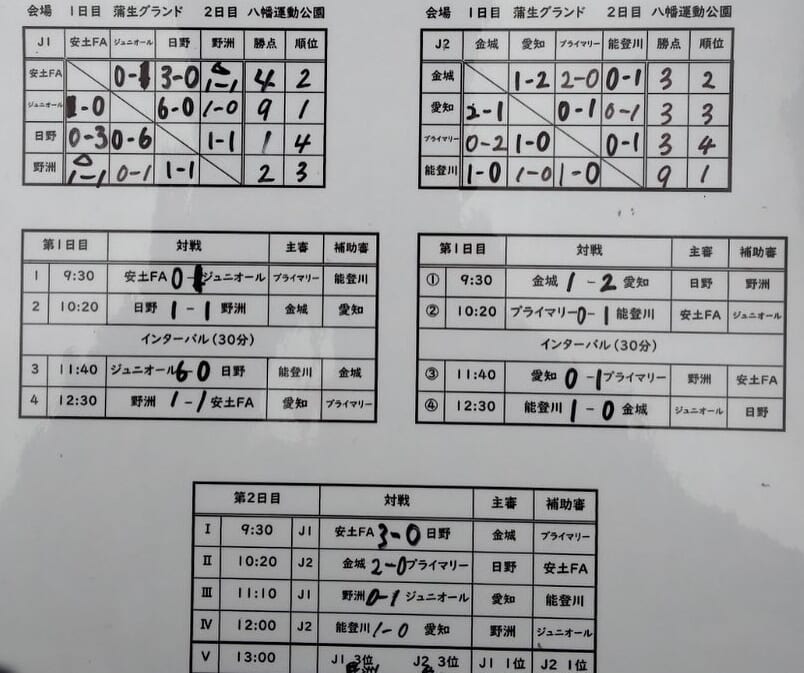 会場 1日目 蒲生グランド 2日目 八幡運動公園
J1 安土FA ジュニオール 日野 野洲 勝点 順位
安土FA 0-1 3-0 △ 1-1 4 2
ジュニオール 1-0 6-0 1-0 9 1
日野 0-3 0-6 1-1 1 4
野洲 △ 1-1 0-1 1-1 2 3
会場 1日目 蒲生グランド 2日目 八幡運動公園
J2 金城 愛知 プライマリー 能登川 勝点 順位
金城 1-2 2-0 0-1 3 2
愛知 2-1 0-1 0-1 3 3
プライマリー 0-2 1-0 0-1 3 4
能登川 1-0 1-0 1-0 9 1
第1日目 対戦 主審 補助審
1 9:30 安土FA 0-1 ジュニオール プライマリー 能登川
2 10:20 日野 1-1 野洲 金城 愛知
インターバル(30分)
3 11:40 ジュニオール 6-0 日野 能登川 金城
4 12:30 野洲 1-1 安土FA 愛知 プライマリー
第1日目 対戦 主審 補助審
① 9:30 金城 1-2 愛知 日野 野洲
② 10:20 プライマリー 0-1 能登川 安土FA ジュニオール
インターバル(30分)
③ 11:40 愛知 0-1 プライマリー 野洲 安土FA
④ 12:30 能登川 1-0 金城 ジュニオール 日野
第2日目 対戦 主審 補助審
Ⅰ 9:30 J1 安土FA 3-0 日野 金城 プライマリー
Ⅱ 10:20 J2 金城 2-0 プライマリー 日野 安土FA
Ⅲ 11:10 J1 野洲 0-1 ジュニオール 愛知 能登川
Ⅳ 12:00 J2 能登川 1-0 愛知 野洲 ジュニオール
Ⅴ 13:00 J1 3位 J2 3位 J1 1位 J2 1位